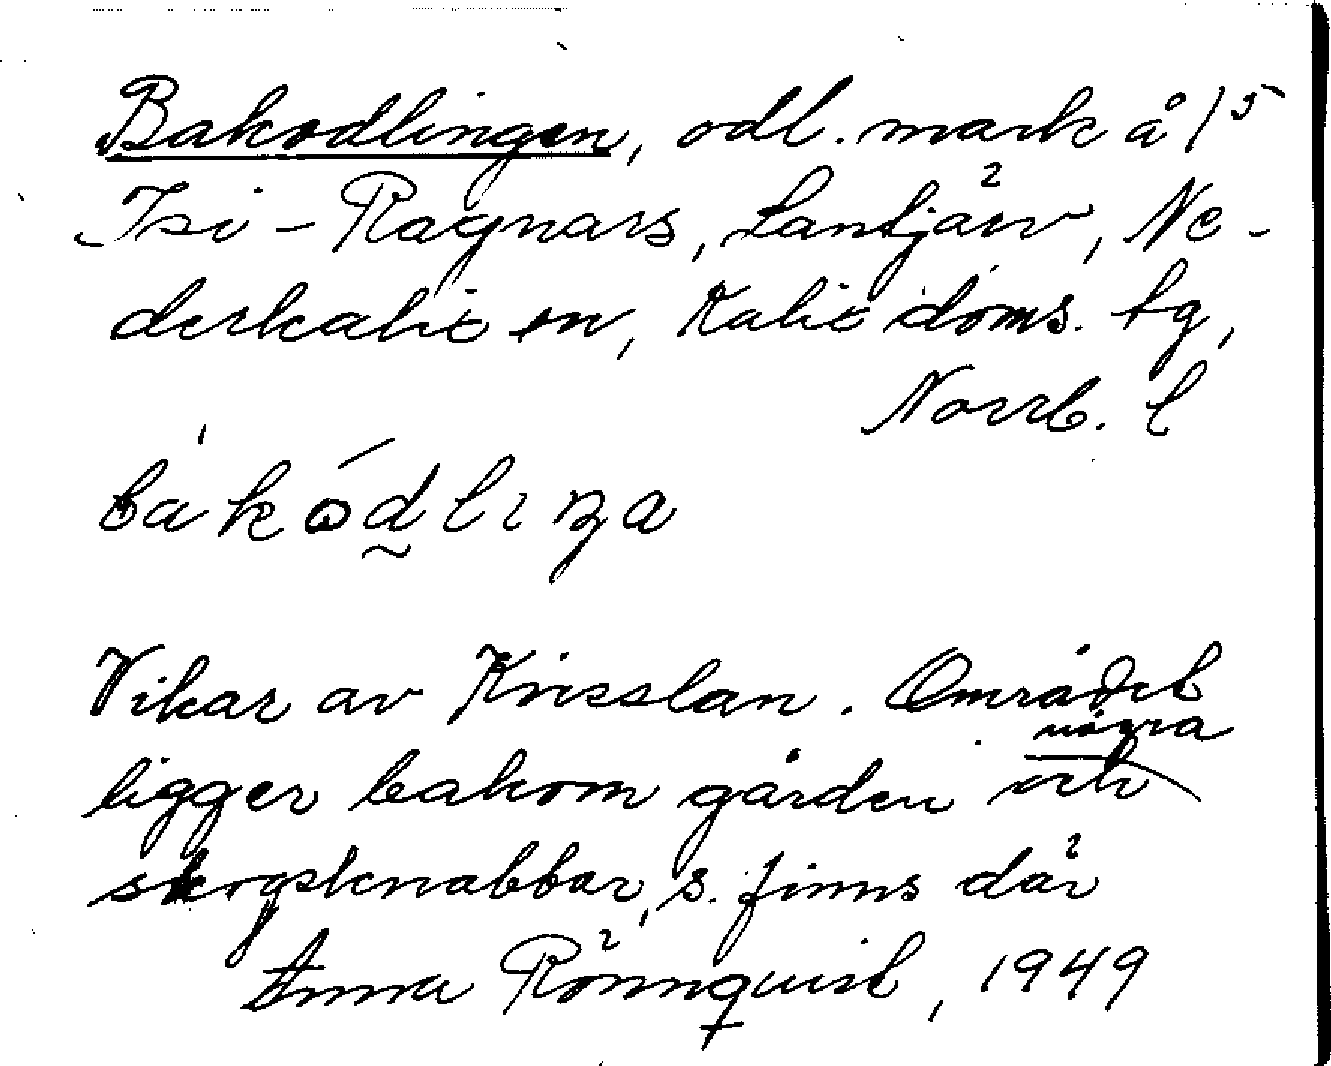 Bakodlingen, odl. mark å 1⁵
Isi-Ragnars, Lantjärv, Ne-
derkalix sn, Kalix doms. tg,
Norrb. l
bakòdlıŋa
Vikar av Krisslan. Området
ligger bakom gården och några
skogsknabbar, s. finns där
Anna Rönnquist, 1949